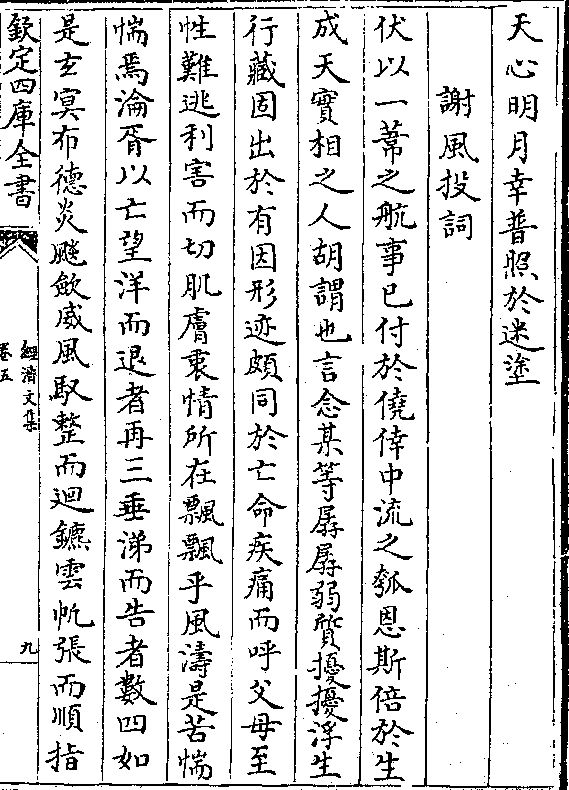 天心明月幸普照於迷塗
謝風投詞
伏以一葦之航事已付於僥倖中流之瓠恩斯倍於生
成天實相之人胡謂也言念某等孱孱弱質擾擾浮生
行藏固出於有因形迹頗同於亡命疾痛而呼父母至
性難逃利害而切肌膚衷情所在飄飄乎風濤是苦惴
惴焉淪胥以亡望洋而退者再三垂涕而告者數四如
是玄冥布德炎飈斂威風馭整而迴鑣雲帆張而順指
欽定四庫全書
經濟文集
卷五
九